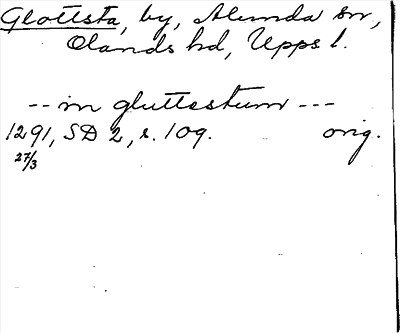 Glottsta, by, Alunda sn,
Olands hd, Upps l.
-- in gluttestum ---
1291, SD 2, s. 109. orig.
27/3